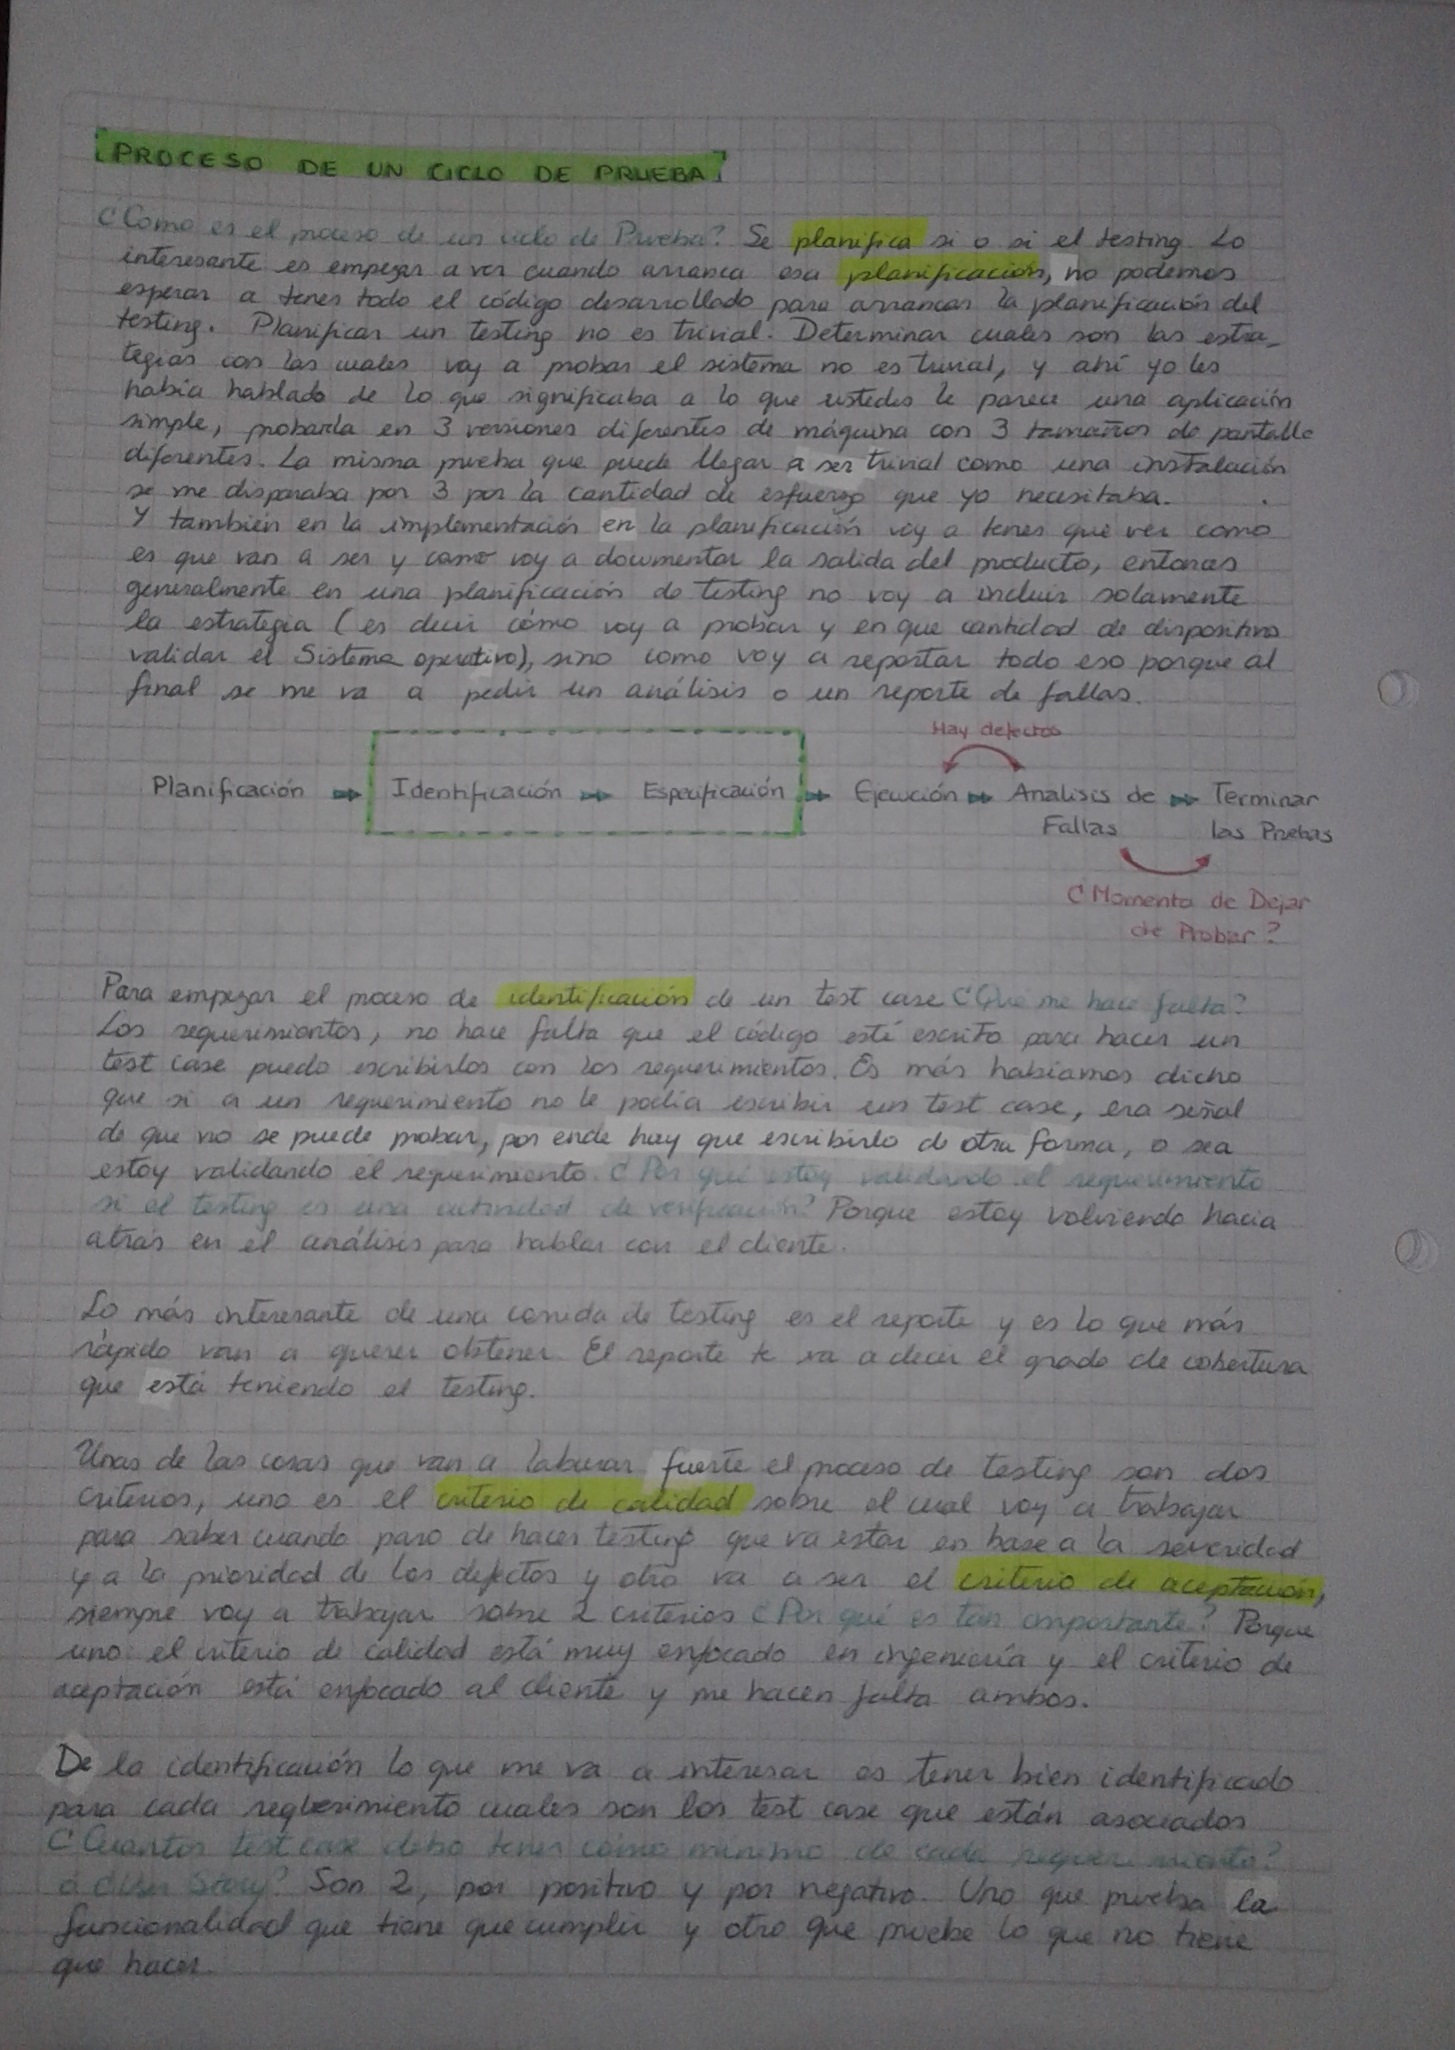 PROCESO DE UN CICLO DE PRUEBA
¿Como es el proceso de un ciclo de Prueba? Se planifica si o si el testing. Lo
interesante es empezar a ver cuando arranca esa planificación, no podemos
esperar a tener todo el código desarrollado para arrancar la planificación del
testing. Planificar un testing no es trivial. Determinar cuales son las estra-
tegias con las cuales voy a probar el sistema no es trivial, y ahí yo les
había hablado de lo que significaba a lo que ustedes le parece una aplicación
simple, probarla en 3 versiones diferentes de máquina con 3 tamaños de pantalla
diferentes. La misma prueba que puede llegar a ser trivial como una instalación
se me disparaba por 3 por la cantidad de esfuerzo que yo necesitaba.
Y también en la implementación en la planificación voy a tener que ver como
es que van a ser y como voy a documentar la salida del producto, entonces
generalmente en una planificación de testing no voy a incluir solamente
la estrategia (es decir cómo voy a probar y en que cantidad de dispositivo
validar el Sistema operativo), sino como voy a reportar todo eso porque al
final se me va a pedir un análisis o un reporte de fallas.
Hay defectos
Planificación Identificación Especificación Ejecución Analisis de Terminar
Fallas las Pruebas
¿Momento de Dejar
de Probar?
Para empezar el proceso de identificación de un test case ¿Que me hace falta?
Los requerimientos, no hace falta que el código esté escrito para hacer un
test case puedo escribirlos con los requerimientos. Es más habíamos dicho
que si a un requerimiento no le podía escribir un test case, era señal
de que no se puede probar, por ende hay que escribirlo de otra forma, o sea
estoy validando el requerimiento. ¿Por qué estoy validando el requerimiento
si el testing es una actividad de verificación? Porque estoy volviendo hacia
atrás en el análisis para hablar con el cliente.
Lo más interesante de una corrida de testing es el reporte y es lo que más
rápido van a querer obtener. El reporte te va a decir el grado de cobertura
que está teniendo el testing.
Unas de las cosas que van a laburar fuerte el proceso de testing son dos
criterios, uno es el criterio de calidad sobre el cual voy a trabajar
para saber cuando paro de hacer testing que va estar en base a la severidad
y a la prioridad de los defectos y otro va a ser el criterio de aceptación,
siempre voy a trabajar sobre 2 criterios ¿Por qué es tan importante? Porque
uno: el criterio de calidad está muy enfocado en ingeniería y el criterio de
aceptación está enfocado al cliente y me hacen falta ambos.
De la identificación lo que me va a interesar es tener bien identificado
para cada requerimiento cuales son los test case que están asociados
¿Cuantos test case debo tener cómo mínimo de cada requerimiento?
ó ¿User Story? Son 2, por positivo y por negativo. Uno que prueba la
funcionalidad que tiene que cumplir y otro que pruebe lo que no tiene
que hacer.